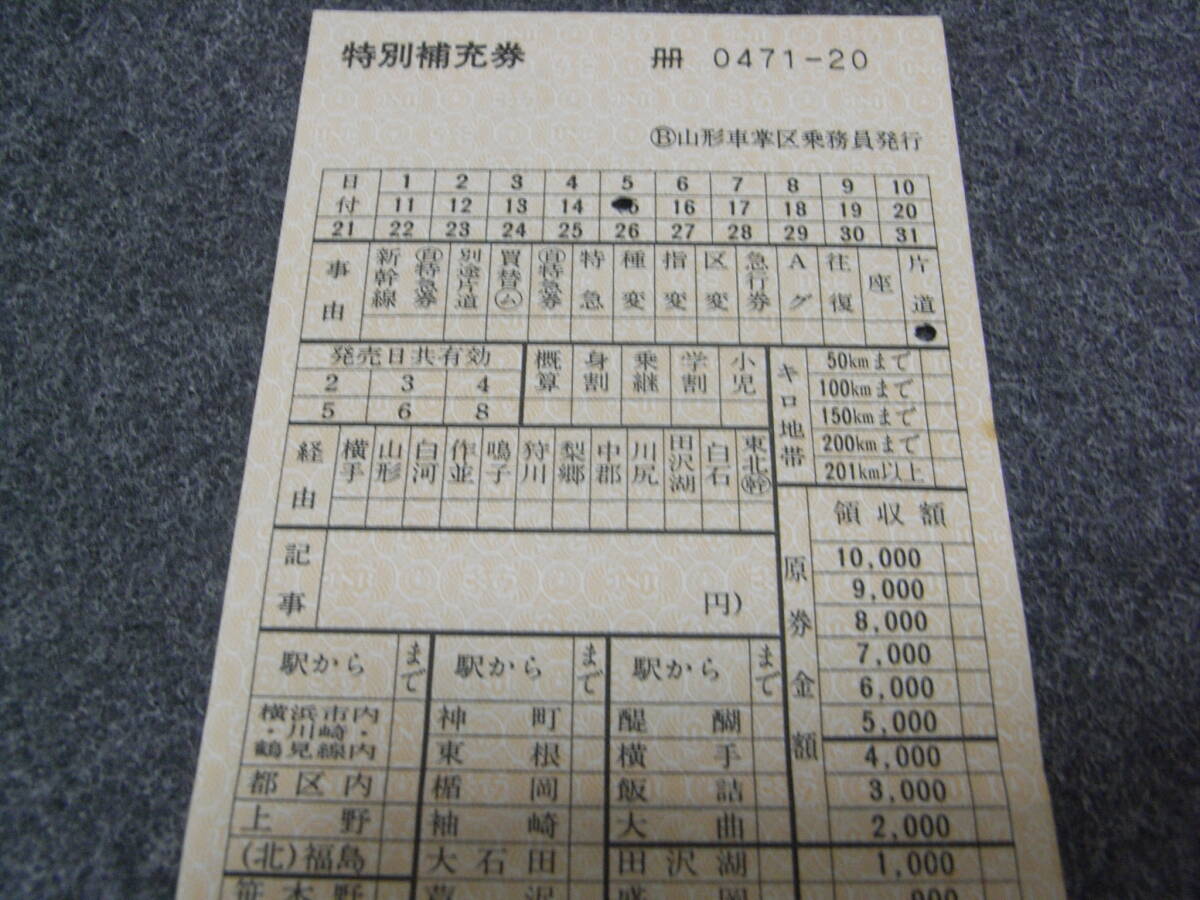 特別補充券 冊 0471-20
Ⓑ山形車掌区乗務員発行
日付 1 2 3 4 5 6 7 8 9 10
11 12 13 14 16 17 18 19 20
21 22 23 24 25 26 27 28 29 30 31
事由 新幹線 ㊀特急券 別途片道 買替㋰ ㊀特急券 特急 種変 指変 区変 急行券 Aグ 往復 座 片道
発売日共有効
2 3 4
5 6 8
概算 身割 乗継 学割 小児
キロ地帯
50kmまで
100kmまで
150kmまで
200kmまで
201km以上
経由 横手 山形 白河 作並 鳴子 狩川 梨郷 中郡 川尻 田沢湖 白石 東北㊥
記事 円)
原券金額
領収額
10,000
9,000
8,000
7,000
6,000
5,000
4,000
3,000
2,000
1,000
900
駅から まで
横浜市内・川崎・鶴見線内
都区内
上野
(北)福島
笹木野
駅から まで
神町
東根
楯岡
袖崎
大石田
芦沢
駅から まで
醍醐
横手
飯詰
大曲
田沢湖
盛岡